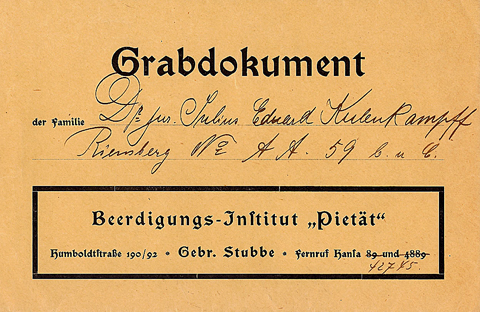 Grabdokument
der Familie Dr. jur. Julius Eduard Kulenkampff
Riensberg No AA. 59 b. u. c.
Beerdigungs-Institut „Pietät“
Humboldtstraße 190/92 • Gebr. Stubbe • Fernruf Hansa 89 und 4889
42745.